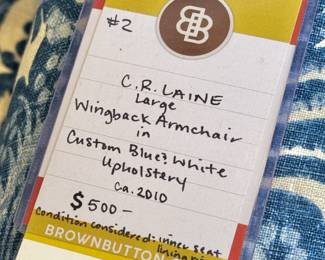 #2
C.R. LAINE
Large
Wingback Armchair
in
Custom Blue & White
Upholstery
ca. 2010
$500-
condition considered: inner seat
lining
BROWNBUTTON